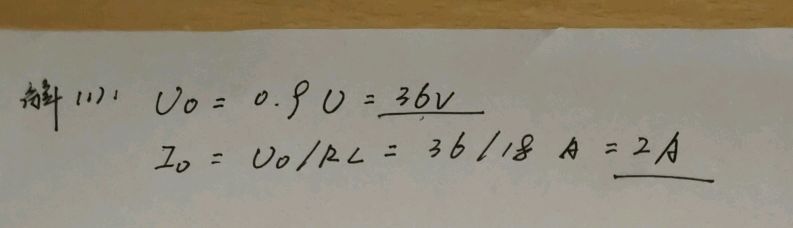 解(1): U0 = 0.9 U = 36V
I0 = U0/RL = 36/18 A = 2A